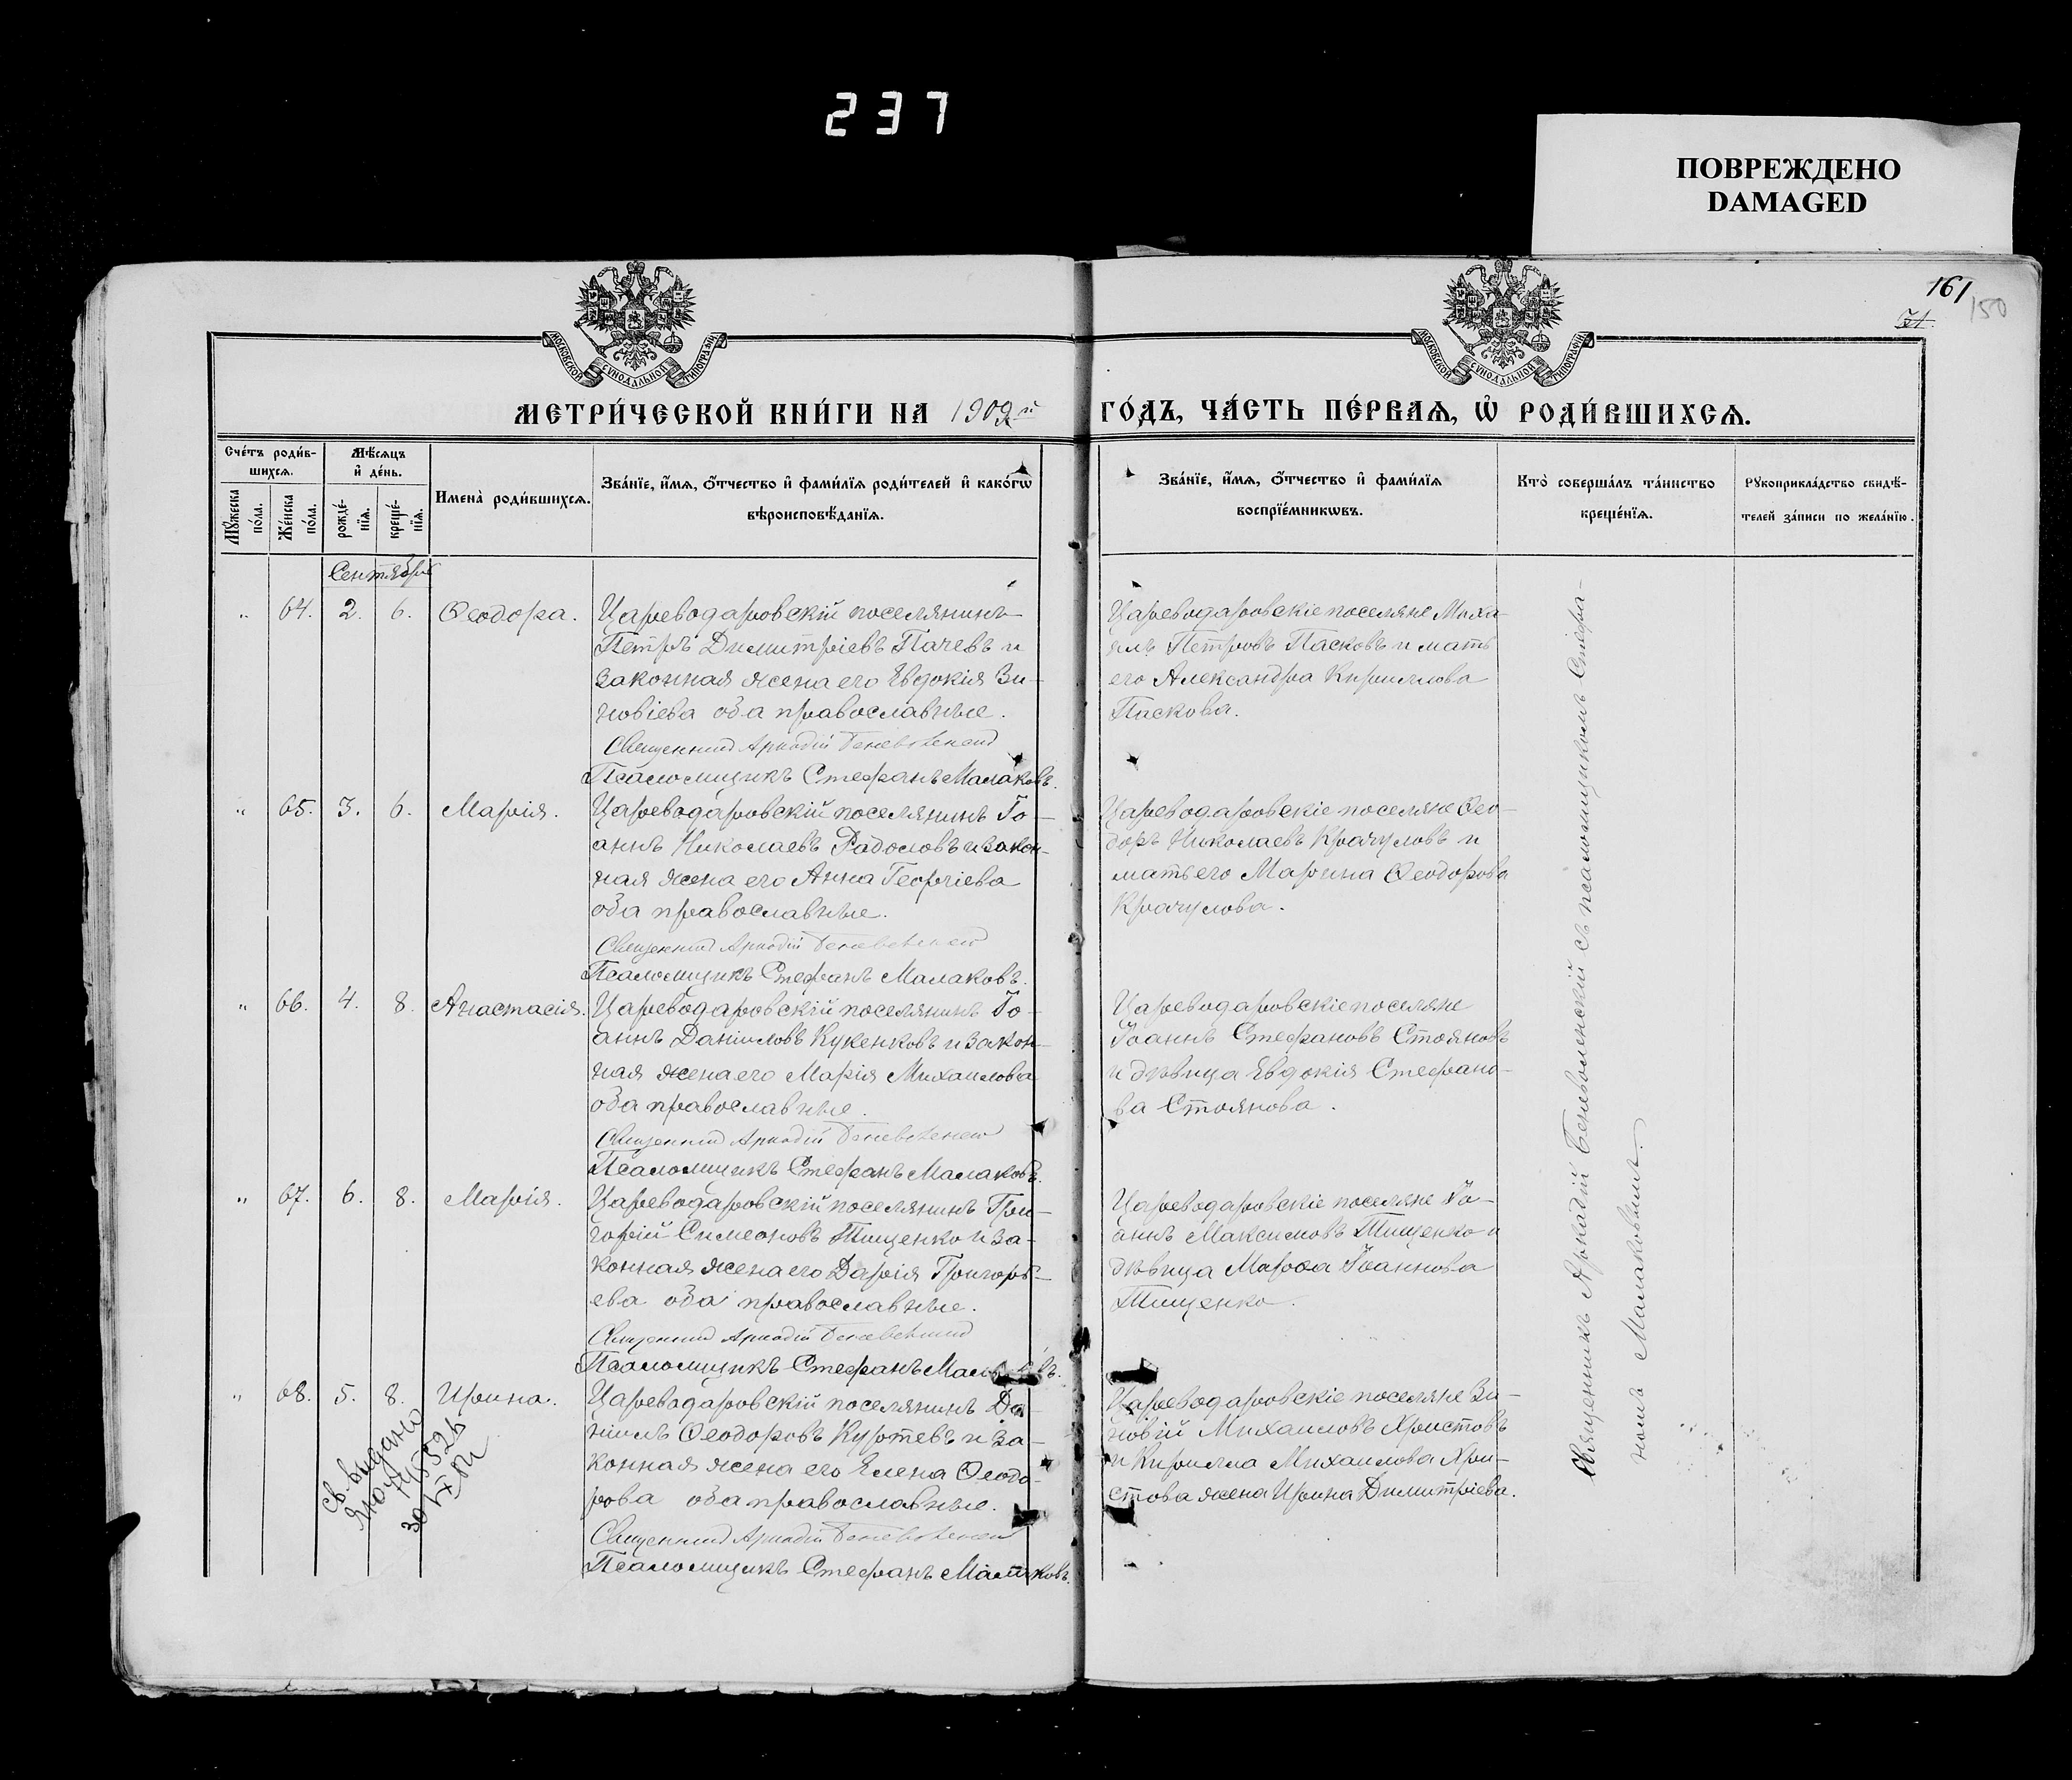 237
ПОВРЕЖДЕНО
DAMAGED
161
150
71.
МОСКОВСКОЙ СѴНОДАЛЬНОЙ ТИПОГРАФІИ
МОСКОВСКОЙ СѴНОДАЛЬНОЙ ТИПОГРАФІИ
МЕТРИ́ЧЕСКОЙ КНИ́ГИ НА 1909й ГО́ДЪ, ЧА́СТЬ ПЕ́РВАѦ, Ѽ РОДИ́ВШИХСѦ.
Сче́тъ роди́в-
шихсѧ.
Мꙋ́жеска
по́ла.
Же́нска
по́ла.
Мѣ́сѧцъ
и҆ де́нь.
рожде́-
нїѧ.
креще́-
нїѧ.
Имена̀ роди́вшихсѧ.
Зва́нїе, и҆́мѧ, ѻ҆́тчество и҆ фами́лїѧ роди́телей и҆ како́гѡ
вѣроисповѣ́данїѧ.
Зва́нїе, и҆́мѧ, ѻ҆́тчество и҆ фами́лїѧ
воспрїе́мникѡвъ.
Кто̀ соверша́лъ та́инство
креще́нїѧ.
Рꙋкоприкла́дство свидѣ́-
телей за́писи по жела́нїю.
Сентябрь
" 64. 2. 6. Ѳеодора.
Цареводаровскій поселянинъ
Петръ Димитріевъ Пачевъ и
законная жена его Евдокія Зи-
новіева оба православные.
Священникъ Аркадій Беневоленскій
Псаломщикъ Стефанъ Малаковъ.
Цареводаровскіе поселяне Миха-
илъ Петровъ Пасковъ и мать
его Александра Кириллова
Паскова.
" 65. 3. 6. Марія.
Цареводаровскій поселянинъ Іо-
аннъ Николаевъ Радоловъ и закон-
ная жена его Анна Георгіева
оба православные.
Священникъ Аркадій Беневоленскій
Псаломщикъ Стефанъ Малаковъ.
Цареводаровскіе поселяне Ѳео-
доръ Николаевъ Крачуловъ и
мать его Марина Ѳеодорова
Крачулова.
" 66. 4. 8. Анастасія.
Цареводаровскій поселянинъ Іо-
аннъ Даніиловъ Кукенковъ и закон-
ная жена его Марія Михаилова
оба православные.
Священникъ Аркадій Беневоленскій
Псаломщикъ Стефанъ Малаковъ.
Цареводаровскіе поселяне
Іоаннъ Стефановъ Стояновъ
и дѣвица Евдокія Стефано-
ва Стоянова.
" 67. 6. 8. Марія.
Цареводаровскій поселянинъ Гри-
горій Симеоновъ Тищенко и за-
конная жена его Дарія Григорь-
ева оба православные.
Священникъ Аркадій Беневоленскій
Псаломщикъ Стефанъ Малаковъ.
Цареводаровскіе поселяне Іо-
аннъ Максимовъ Тищенко и
дѣвица Марѳа Іоаннова
Тищенко.
" 68. 5. 8. Ирина.
Цареводаровскій поселянинъ Да-
ніилъ Ѳеодоровъ Куртевъ и за-
конная жена его Елена Ѳеодо-
рова оба православные.
Священникъ Аркадій Беневоленскій
Псаломщикъ Стефанъ Малаковъ.
Цареводаровскіе поселяне Зи-
новій Михаиловъ Христовъ
и Кирилла Михаилова Хри-
стова жена Ирина Димитріева.
св. выдано
Священникъ Аркадій Беневоленскій съ псаломщикомъ Стефа-
номъ Малаковымъ.